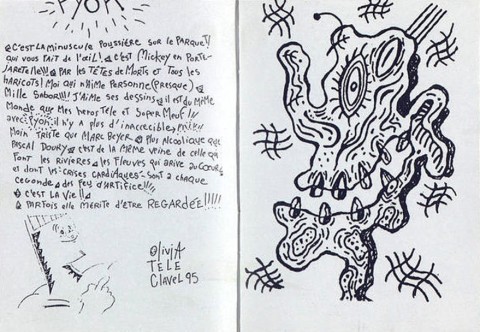 PYON
C'EST LA MINUSCULE POUSSIÈRE SUR LE PARQUET
QUI VOUS FAIT DE L'ŒIL! C'EST MICKEY EN PORTE-
JARETELLE!! PAR LES TÊTES DE MORTS ET TOUS LES
HARICOTS! MOI QUI N'AIME PERSONNE (PRESQUE)
MILLE SABOR!!! J'AIME SES DESSINS IL EST DU MÊME
MONDE QUE MES HEROS TELE ET SUPER MEUF!!
AVEC PYON IL N'Y A PLUS D'INACCECIBLES
MOIN TRISTE QUE MARC BEYER PLUS ALCOOLIQUE QUE
PASCAL DOURY C'EST DE LA MÊME VEINE DE CELLE QUI
FONT LES RIVIÈRES LES FLEUVES QUI ARRIVE AU COEUR
ET DONT LES CRISES CARDIAQUES SONT A CHAQUE
CECONDE DES FEU D'ARTIFICE!!!
C'EST LA VIE!!
PARFOIS ELLE MÉRITE D'ETRE REGARDÉE!!!!!
OLIVIA
TELE
CLAVEL 95